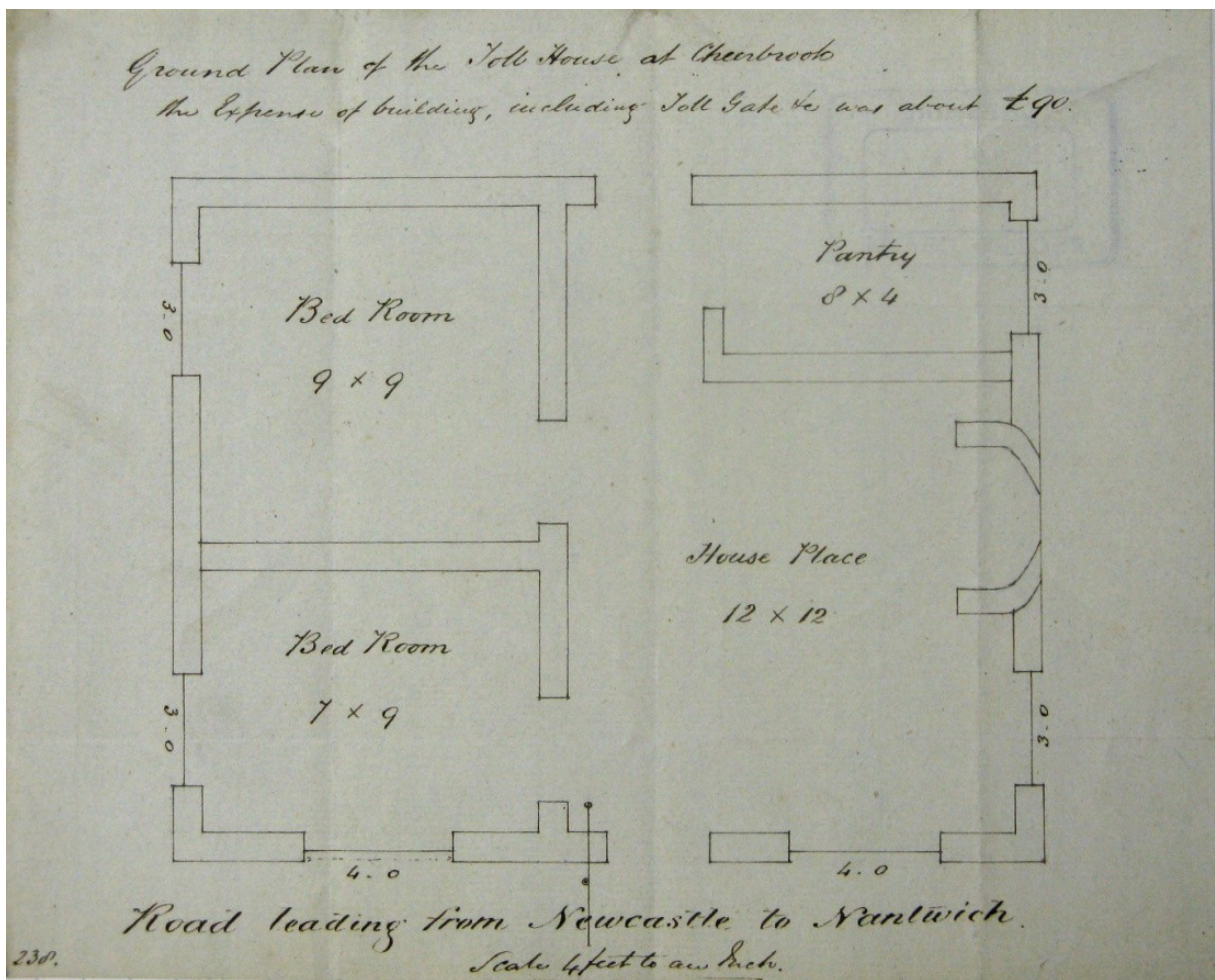 Ground Plan of the Toll House at Cheerbrook
the Expense of building, including Toll Gate &c was about £90.
Pantry
8 × 4
3.0
3.0
Bed Room
9 × 9
House Place
12 × 12
Bed Room
7 × 9
3.0
3.0
4.0
4.0
Road leading from Newcastle to Nantwich.
238.
Scale 4 feet to an Inch.